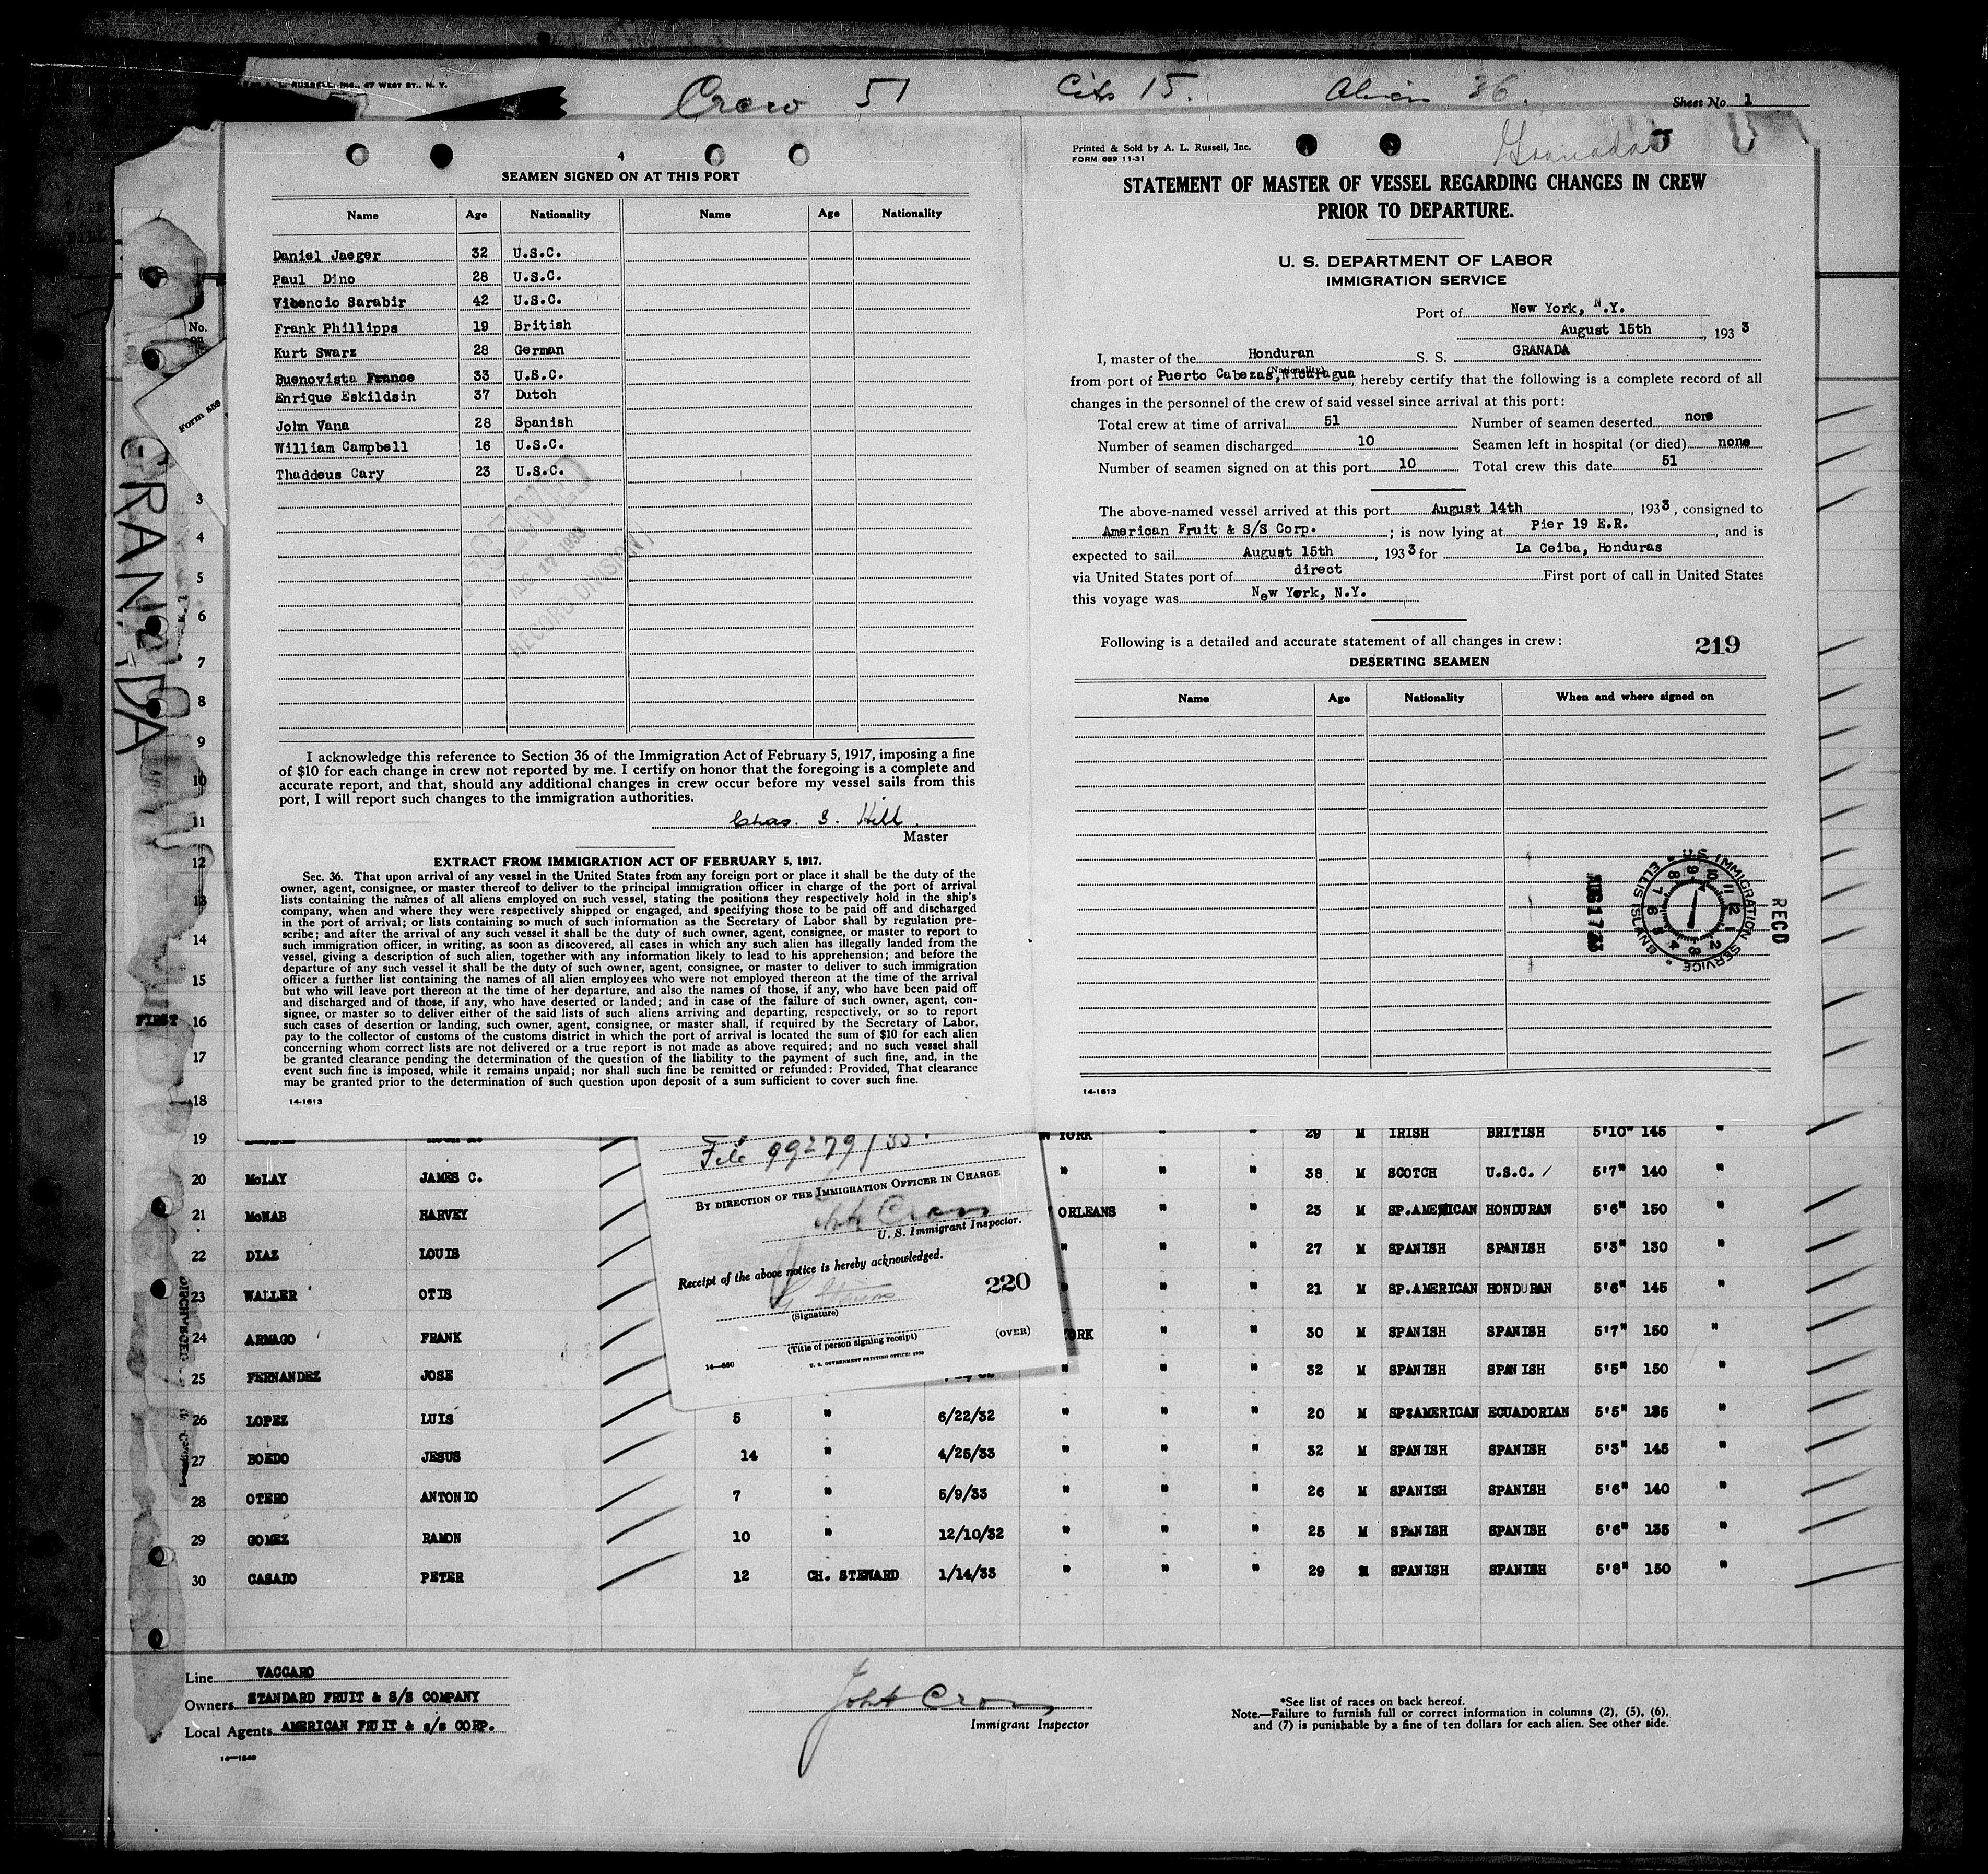 L. RUSSELL, INC., 47 WEST ST., N. Y.
Crew 51 Cits 15. Alien 36.
Sheet No. 1
4
SEAMEN SIGNED ON AT THIS PORT
Name Age Nationality Name Age Nationality
Daniel Jaeger 32 U.S.C.
Paul Dino 28 U.S.C.
Vicencio Sarabir 42 U.S.C.
Frank Phillipps 19 British
Kurt Swarz 28 German
Buenovista France 33 U.S.C.
Enrique Eskildsin 37 Dutch
John Vana 28 Spanish
William Campbell 16 U.S.C.
Thaddeus Cary 23 U.S.C.
RECEIVED
AUG 17 1933
RECORD DIVISION
I acknowledge this reference to Section 36 of the Immigration Act of February 5, 1917, imposing a fine
of $10 for each change in crew not reported by me. I certify on honor that the foregoing is a complete and
accurate report, and that, should any additional changes in crew occur before my vessel sails from this
port, I will report such changes to the immigration authorities.
Chas. S. Hill
Master
EXTRACT FROM IMMIGRATION ACT OF FEBRUARY 5, 1917.
Sec. 36. That upon arrival of any vessel in the United States from any foreign port or place it shall be the duty of the
owner, agent, consignee, or master thereof to deliver to the principal immigration officer in charge of the port of arrival
lists containing the names of all aliens employed on such vessel, stating the positions they respectively hold in the ship's
company, when and where they were respectively shipped or engaged, and specifying those to be paid off and discharged
in the port of arrival; or lists containing so much of such information as the Secretary of Labor shall by regulation pre-
scribe; and after the arrival of any such vessel it shall be the duty of such owner, agent, consignee, or master to report to
such immigration officer, in writing, as soon as discovered, all cases in which any such alien has illegally landed from the
vessel, giving a description of such alien, together with any information likely to lead to his apprehension; and before the
departure of any such vessel it shall be the duty of such owner, agent, consignee, or master to deliver to such immigration
officer a further list containing the names of all alien employees who were not employed thereon at the time of the arrival
but who will leave port thereon at the time of her departure, and also the names of those, if any, who have been paid off
and discharged and of those, if any, who have deserted or landed; and in case of the failure of such owner, agent, con-
signee, or master so to deliver either of the said lists of such aliens arriving and departing, respectively, or so to report
such cases of desertion or landing, such owner, agent, consignee, or master shall, if required by the Secretary of Labor,
pay to the collector of customs of the customs district in which the port of arrival is located the sum of $10 for each alien
concerning whom correct lists are not delivered or a true report is not made as above required; and no such vessel shall
be granted clearance pending the determination of the question of the liability to the payment of such fine, and, in the
event such fine is imposed, while it remains unpaid; nor shall such fine be remitted or refunded: Provided, That clearance
may be granted prior to the determination of such question upon deposit of a sum sufficient to cover such fine.
14-1613
Printed & Sold by A. L. Russell, Inc.
FORM 689 11-31
Granada
STATEMENT OF MASTER OF VESSEL REGARDING CHANGES IN CREW
PRIOR TO DEPARTURE.
U. S. DEPARTMENT OF LABOR
IMMIGRATION SERVICE
Port of New York, N.Y.
August 15th, 1933
I, master of the Honduran S. S. GRANADA
(Nationality)
from port of Puerto Cabezas, Nicaragua, hereby certify that the following is a complete record of all
changes in the personnel of the crew of said vessel since arrival at this port:
Total crew at time of arrival 51 Number of seamen deserted none
Number of seamen discharged 10 Seamen left in hospital (or died) none
Number of seamen signed on at this port 10 Total crew this date 51
The above-named vessel arrived at this port August 14th, 1933, consigned to
American Fruit & S/S Corp.; is now lying at Pier 19 E.R., and is
expected to sail August 15th, 1933 for La Ceiba, Honduras
via United States port of direct First port of call in United States
this voyage was New York, N.Y.
Following is a detailed and accurate statement of all changes in crew:
219
DESERTING SEAMEN
Name Age Nationality When and where signed on
AUG 17 33
U.S. IMMIGRATION SERVICE
ELLIS ISLAND
RECD
14-1613
No.
on
Form 559
GRANADA
3
4
5
6
7
8
9
10
11
12
13
14
15
FIRST 16
17
18
19 YORK " " 29 M IRISH BRITISH 5'10" 145 "
20 McLAY JAMES C. " " " 38 M SCOTCH U.S.C. 5'7" 140 "
21 McNAB HARVEY ORLEANS " " 23 M SP.AMERICAN HONDURAN 5'6" 150 "
22 DIAZ LOUIS " " " 27 M SPANISH SPANISH 5'3" 130 "
23 WALLER OTIS " " 21 M SP.AMERICAN HONDURAN 5'6" 145 "
24 ARMAGO FRANK YORK " " 30 M SPANISH SPANISH 5'7" 150 "
25 FERNANDEZ JOSE " " " 32 M SPANISH SPANISH 5'5" 150 "
26 LOPEZ LUIS 5 " 6/22/32 " " " 20 M SP:AMERICAN ECUADORIAN 5'5" 135 "
27 BOEDO JESUS 14 " 4/25/33 " " " 32 M SPANISH SPANISH 5'3" 145 "
28 OTERO ANTONIO 7 " 5/9/33 " " " 26 M SPANISH SPANISH 5'6" 140 "
29 GOMEZ RAMON 10 " 12/10/32 " " " 25 M SPANISH SPANISH 5'6" 135 "
30 CASADO PETER 12 CH. STEWARD 1/14/33 " " " 29 M SPANISH SPANISH 5'8" 150 "
File 99279/33
BY DIRECTION OF THE IMMIGRATION OFFICER IN CHARGE
John Cron
U. S. Immigrant Inspector.
Receipt of the above notice is hereby acknowledged.
220
(Signature)
(Title of person signing receipt) (OVER)
14—660 U. S. GOVERNMENT PRINTING OFFICE: 1930
Line VACCARO
Owners STANDARD FRUIT & S/S COMPANY
Local Agents AMERICAN FRUIT & s/s CORP.
John Cron
Immigrant Inspector
*See list of races on back hereof.
Note.—Failure to furnish full or correct information in columns (2), (5), (6),
and (7) is punishable by a fine of ten dollars for each alien. See other side.